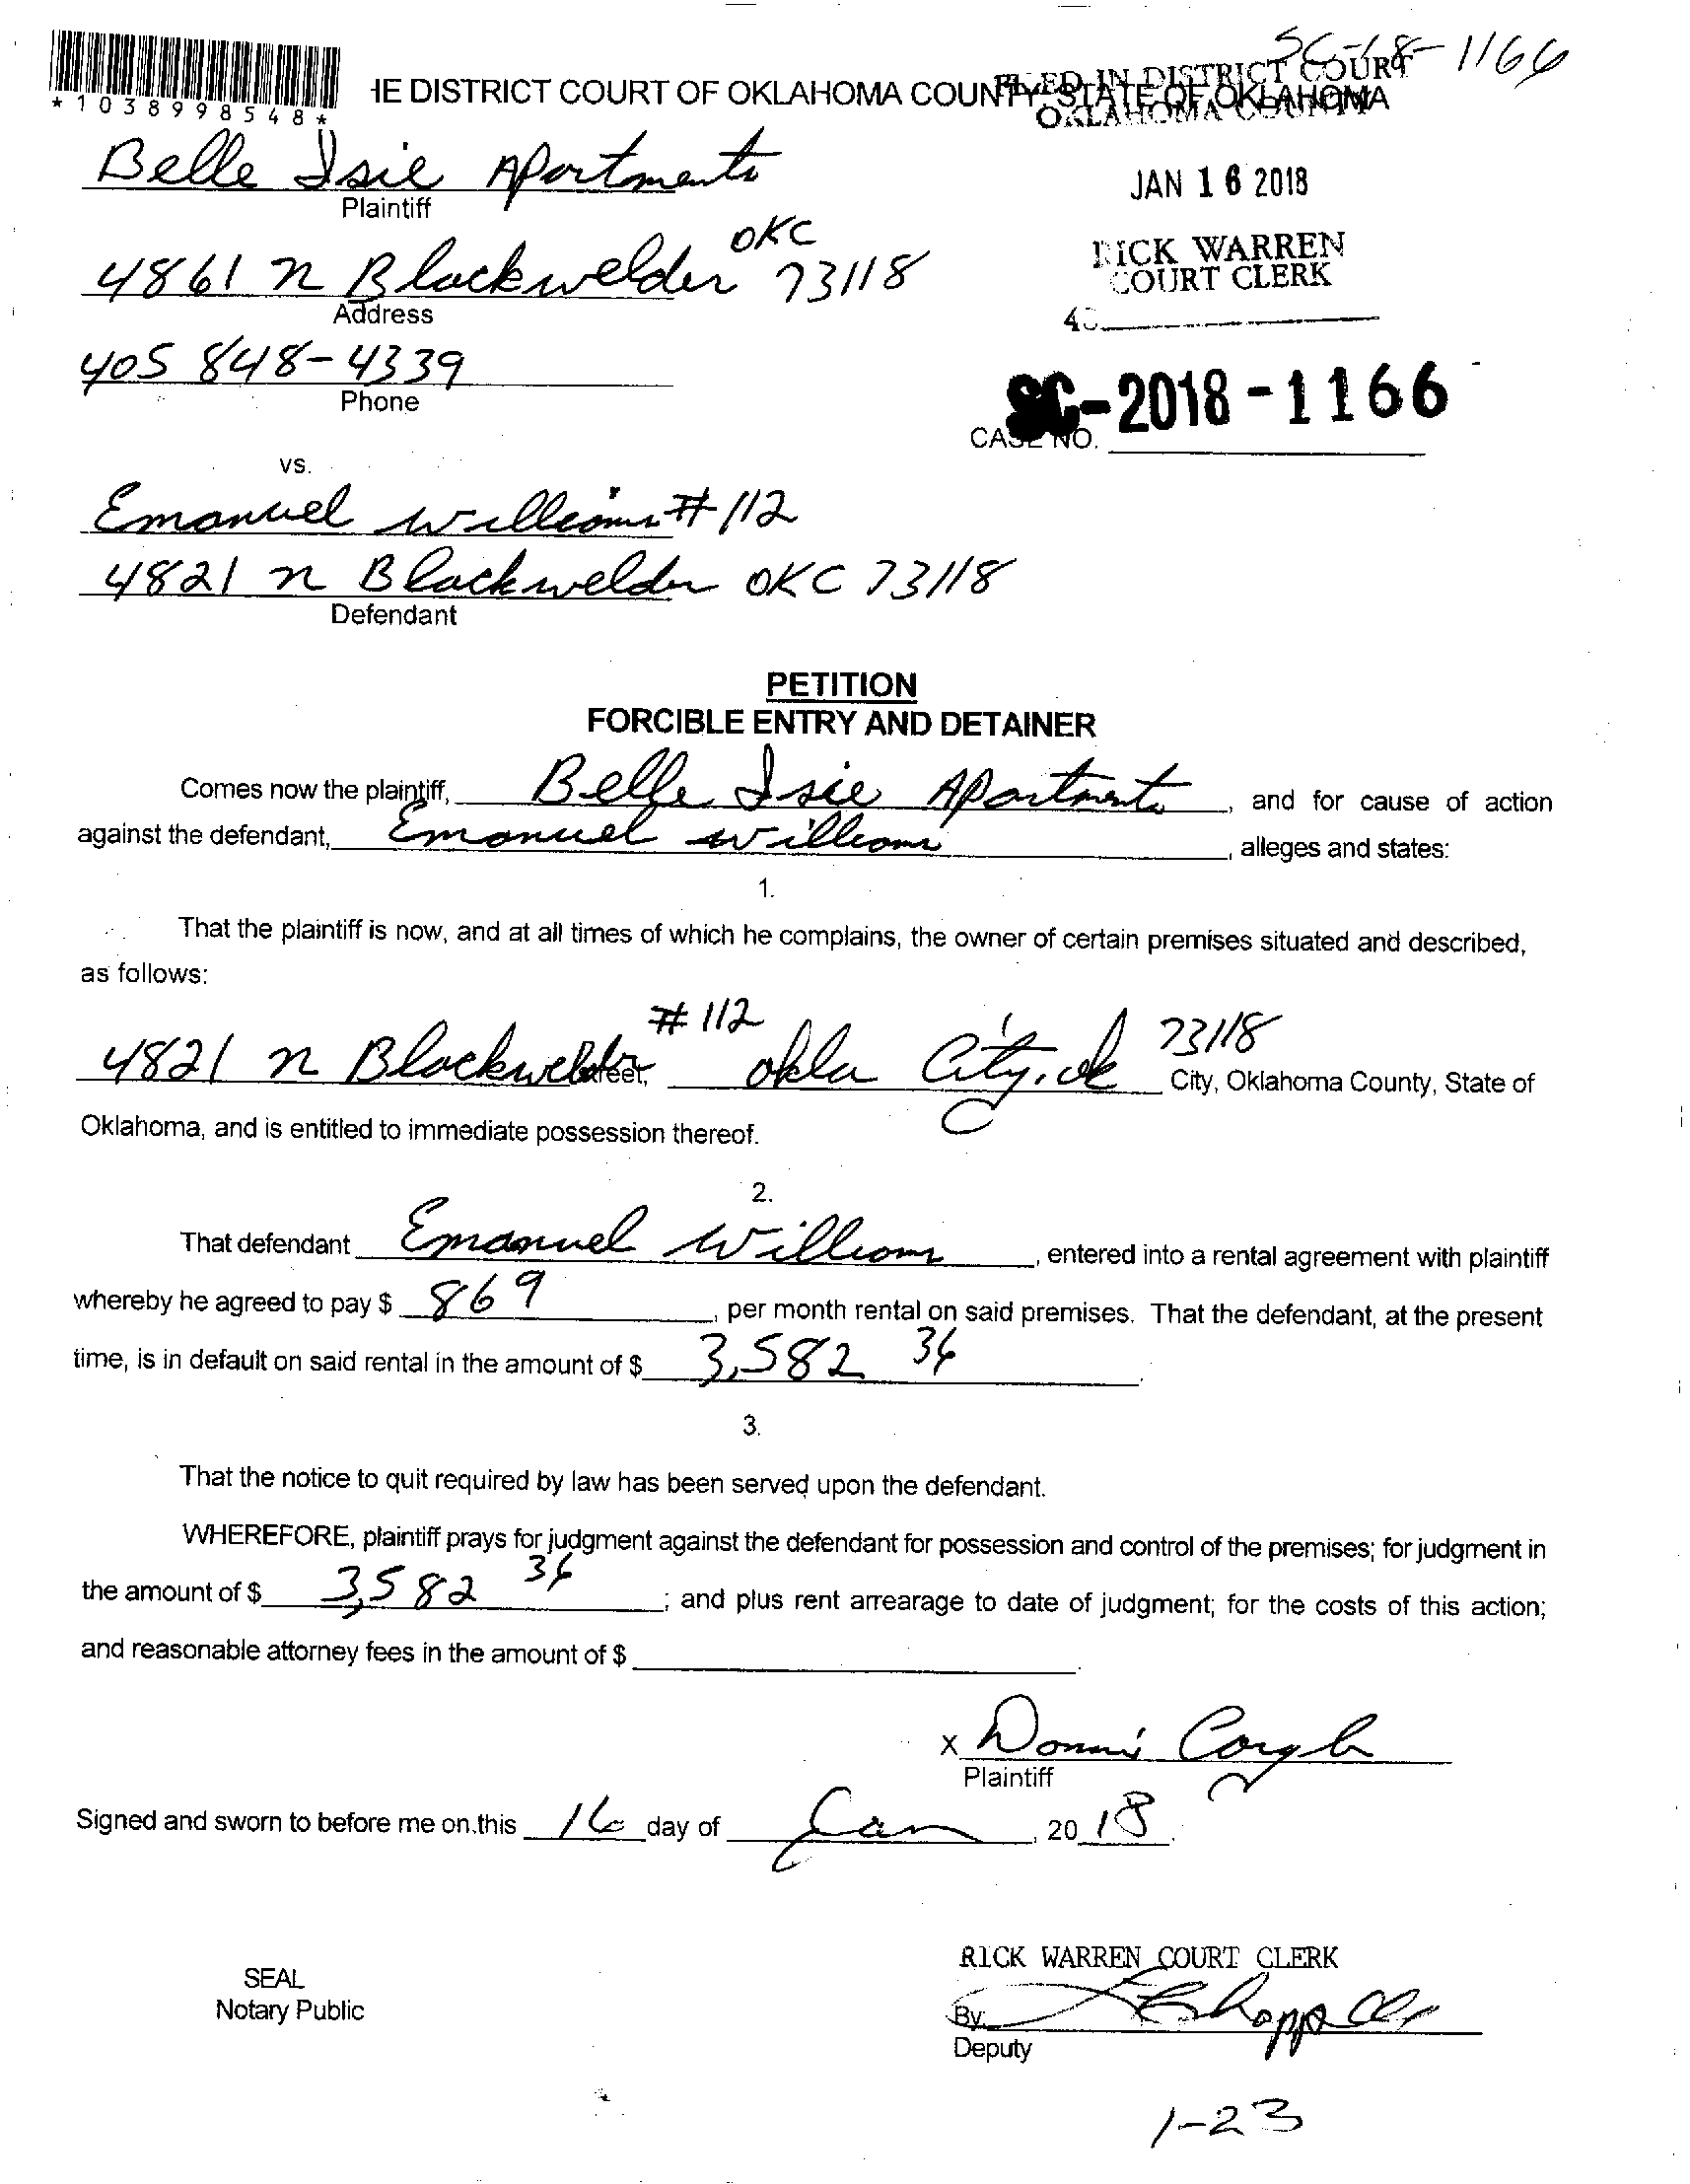 SC-18-1166
*1038998548*
HE DISTRICT COURT OF OKLAHOMA COUNTY, STATE OF OKLAHOMA
FILED IN DISTRICT COURT
OKLAHOMA COUNTY
Belle Isle Apartments
Plaintiff
JAN 16 2018
4861 N Blackwelder OKC 73118
Address
RICK WARREN
COURT CLERK
405 848-4339
Phone
SC-2018-1166
CASE NO.
vs.
Emanuel Williams #112
4821 N Blackwelder OKC 73118
Defendant
PETITION
FORCIBLE ENTRY AND DETAINER
Comes now the plaintiff, Belle Isle Apartments, and for cause of action
against the defendant, Emanuel Williams, alleges and states:
1.
That the plaintiff is now, and at all times of which he complains, the owner of certain premises situated and described,
as follows:
4821 N Blackwelder #112 Street, Okla City, Ok 73118 City, Oklahoma County, State of
Oklahoma, and is entitled to immediate possession thereof.
2.
That defendant Emanuel Williams, entered into a rental agreement with plaintiff
whereby he agreed to pay $ 869, per month rental on said premises. That the defendant, at the present
time, is in default on said rental in the amount of $ 3,582 36.
3.
That the notice to quit required by law has been served upon the defendant.
WHEREFORE, plaintiff prays for judgment against the defendant for possession and control of the premises; for judgment in
the amount of $ 3,582 36; and plus rent arrearage to date of judgment; for the costs of this action;
and reasonable attorney fees in the amount of $ .
X
Plaintiff
Signed and sworn to before me on this 16 day of Jan, 2018.
RICK WARREN COURT CLERK
SEAL
Notary Public
By:
Deputy
1-23